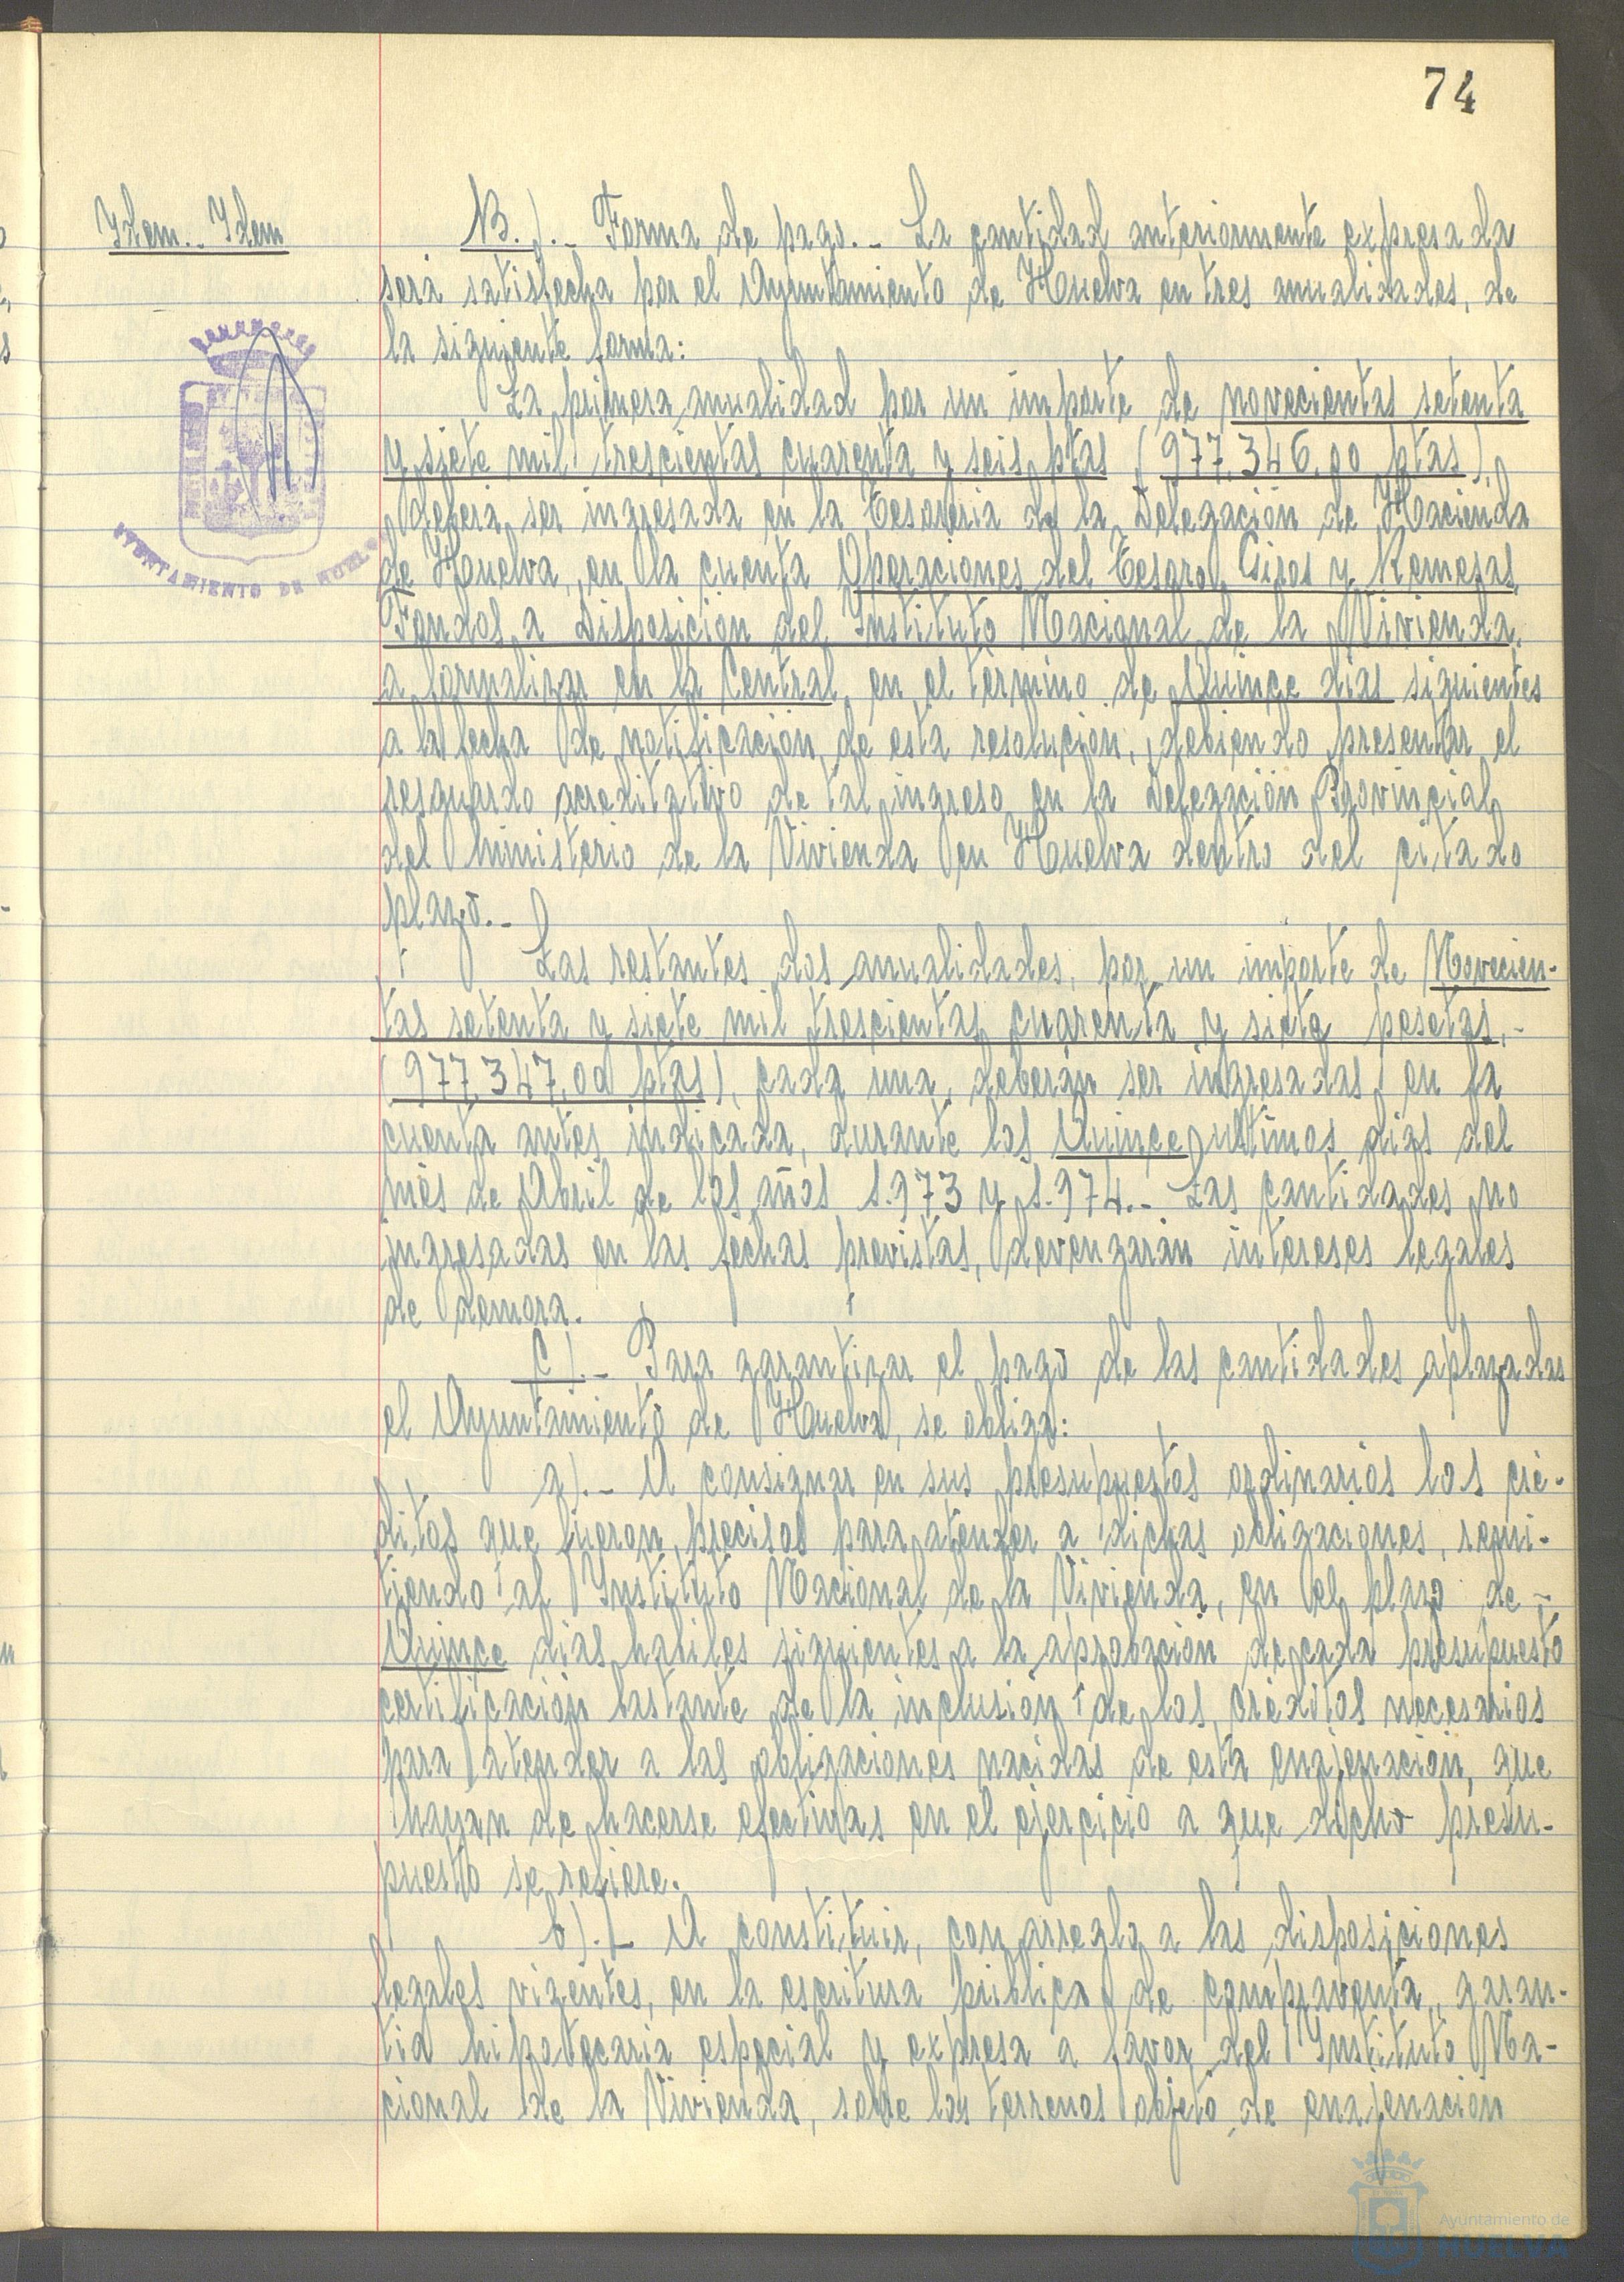 74
Ydem.- Ydem
B.).- Forma de pago.- La cantidad anteriormente expresada
será satisfecha por el Ayuntamiento de Huelva en tres anualidades, de
la siguiente forma:
La primera anualidad por un importe de novecientas setenta
y siete mil trescientas cuarenta y seis ptas (977.346,00 ptas),
deberá ser ingresada en la Tesorería de la Delegación de Hacienda
de Huelva, en la cuenta Operaciones del Tesoro, Giros y Remesas,
Fondos a Disposición del Instituto Nacional de la Vivienda,
a formalizar en la Central, en el término de Quince días siguientes
a la fecha de notificación de esta resolución, debiendo presentar el
resguardo acreditativo de tal ingreso en la Delegación Provincial
del Ministerio de la Vivienda en Huelva dentro del citado
plazo.-
Las restantes dos anualidades, por un importe de Novecien-
tas setenta y siete mil trescientas cuarenta y siete pesetas,-
(977.347,00 ptas), cada una, deberán ser ingresadas en la
cuenta antes indicada, durante los Quince últimos días del
mes de Abril de los años 1.973 y 1.974.- Las cantidades no
ingresadas en las fechas previstas, devengarán intereses legales
de demora.
C).- Para garantizar el pago de las cantidades aplazadas
el Ayuntamiento de Huelva, se obliga:
a).- A consignar en sus presupuestos ordinarios los cré-
ditos que fueron precisos para atender a dichas obligaciones, remi-
tiendo al Instituto Nacional de la Vivienda, en el plazo de -
Quince días hábiles siguientes a la aprobación de cada presupuesto
certificación bastante de la inclusión de los créditos necesarios
para atender a las obligaciones nacidas de esta enajenación, que
hayan de hacerse efectivas en el ejercicio a que dicho presu-
puesto se refiere.
b).- A constituir, con arreglo a las disposiciones
legales vigentes, en la escritura pública de compraventa, garan-
tía hipotecaria especial y expresa a favor del Instituto Na-
cional de la Vivienda, sobre los terrenos objeto de enajenación
AYUNTAMIENTO DE HUELVA
Ayuntamiento de
HUELVA